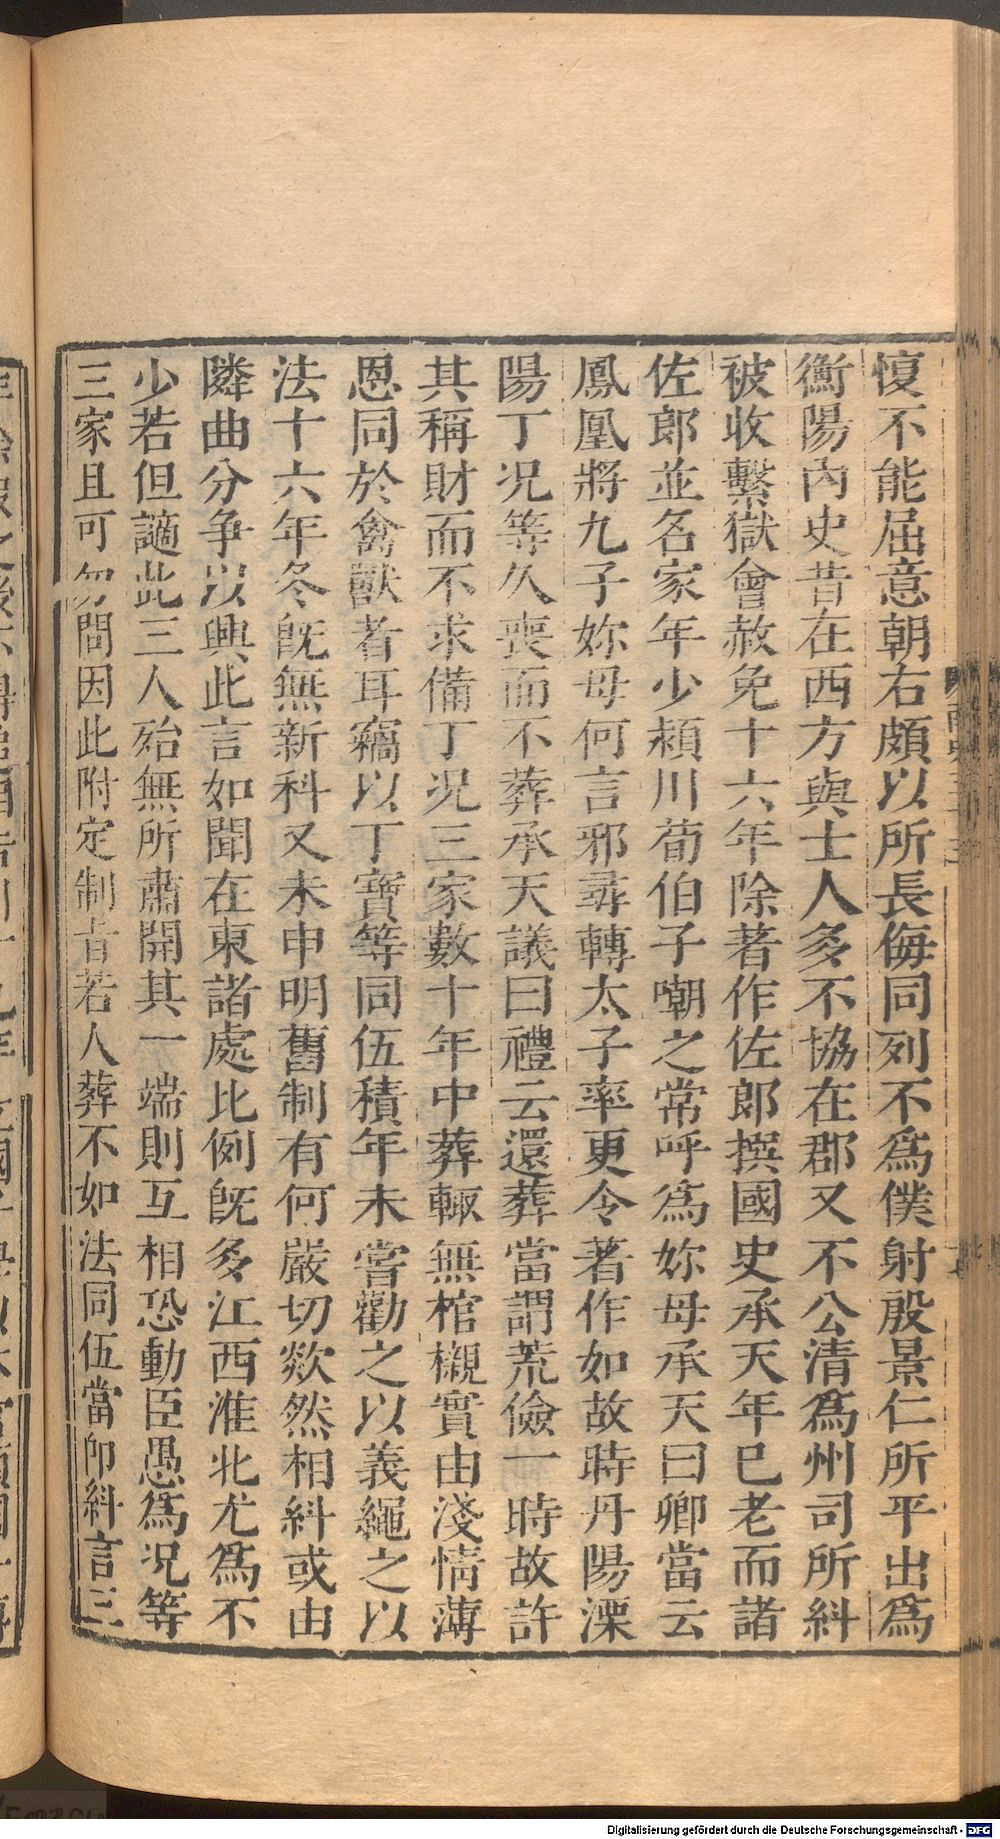 愎不能屈意朝右頗以所長侮同列不爲僕射殷景仁所平出爲
衡陽內史昔在西方與士人多不協在郡又不公清爲州司所糾
被收繫獄會赦免十六年除著作佐郎撰國史承天年已老而諸
佐郎並名家年少潁川荀伯子嘲之常呼爲妳母承天曰卿當云
鳳凰將九子妳母何言邪尋轉太子率更令著作如故時丹陽溧
陽丁况等久喪而不葬承天議曰禮云還葬當謂荒儉一時故許
其稱財而不求備丁况三家數十年中葬輒無棺櫬實由淺情薄
恩同於禽獸者耳竊以丁寶等同伍積年未嘗勸之以義繩之以
法十六年冬旣無新科又未申明舊制有何嚴切欻然相糾或由
隣曲分争以興此言如聞在東諸處比例旣多江西淮北尤爲不
少若但讁此三人殆無所肅開其一端則互相恐動臣愚爲况等
三家且可勿問因此附定制旨若人葬不如法同伍當卽糾言三
Digitalisierung gefördert durch die Deutsche Forschungsgemeinschaft - DFG